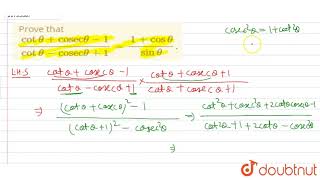 Prove that
cot θ + cosec θ − 1 / cot θ − cosec θ + 1 = 1 + cos θ / sin θ.
cosec²θ = 1 + cot²θ
L.H.S cotθ + cosecθ − 1 / cotθ − cosecθ + 1 × cotθ + cosecθ + 1 / cotθ + cosecθ + 1
⇒ (cotθ + cosecθ)² − 1 / (cotθ + 1)² − cosec²θ → cot²θ + cosec²θ + 2cotθ cosecθ − 1 / cot²θ + 1 + 2cotθ − cosec²θ
⇒
doubtnut